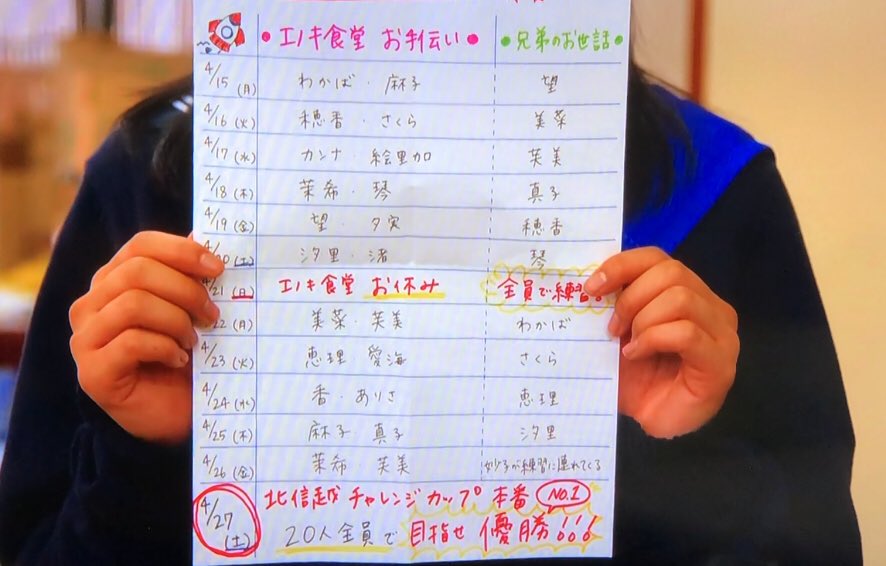 • エノキ食堂 お手伝い • • 兄弟のお世話 •
4/15 (月) わかば・麻子 望
4/16 (火) 穂香・さくら 美菜
4/17 (水) カンナ・絵里加 芙美
4/18 (木) 茉希・琴 真子
4/19 (金) 望・夕実 穂香
(土) 汐里・渚 琴
21 (日) エノキ食堂 お休み 全員で練習
22 (月) 美菜・芙美 わかば
4/23 (火) 恵理・愛海 さくら
4/24 (水) 香・ありさ 恵理
4/25 (木) 麻子・真子 汐里
4/26 (金) 茉希・芙美 妙子が練習に連れてくる
4/27 (土) 北信越チャレンジカップ 本番 NO.1
20人全員で 目指せ 優勝!!!